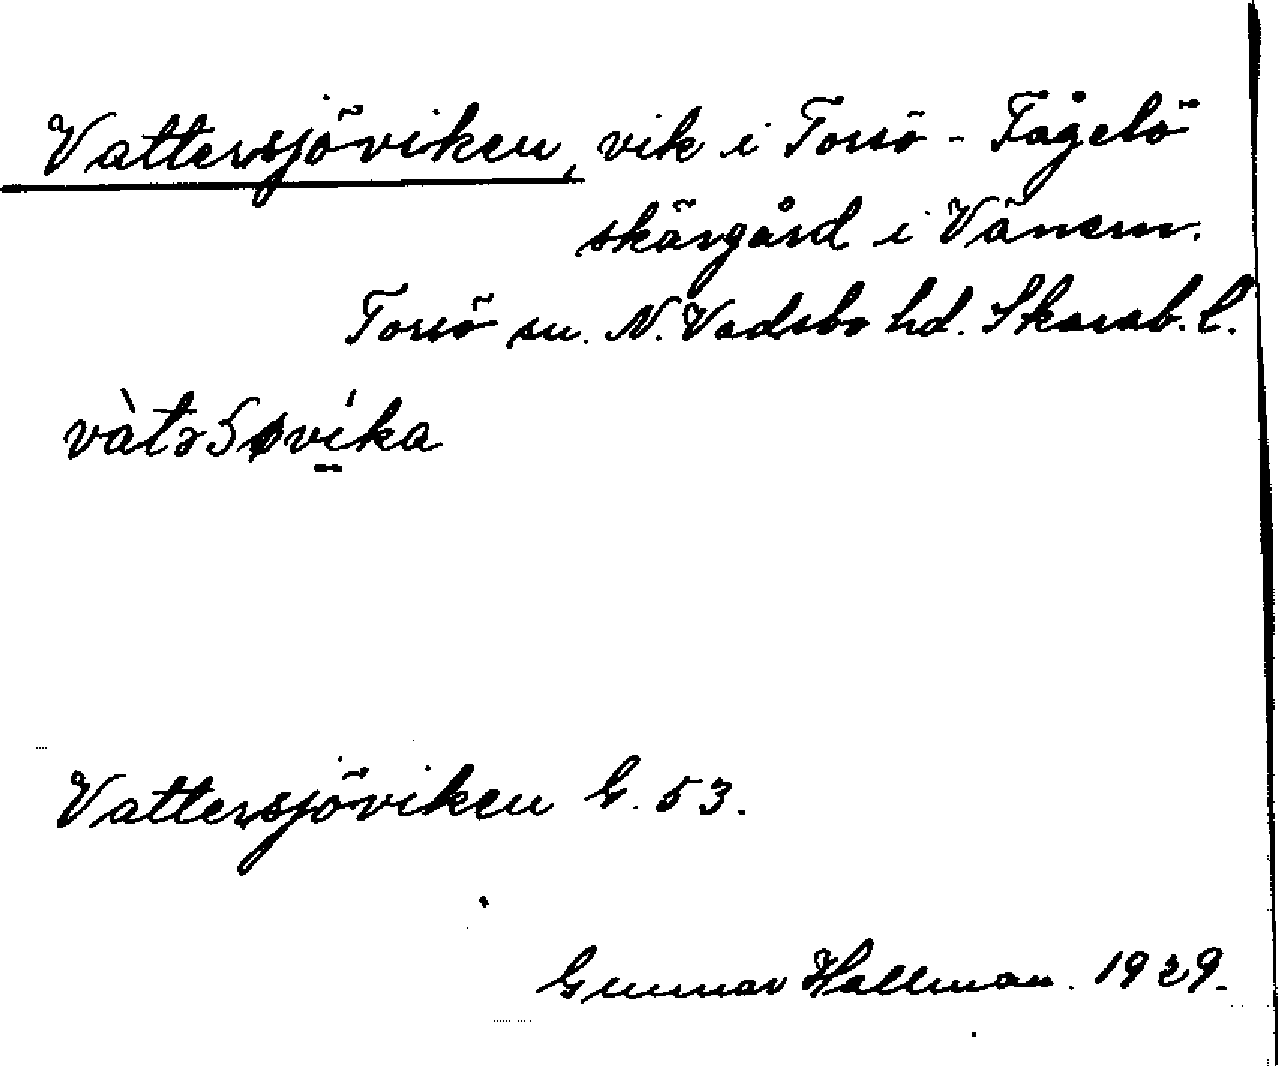 Vattersjöviken, vik i Torsö - Fågelö
skärgård i Vänern.
Torsö sn. N. Vadsbo hd. Skarab. l.
vàtəʃøvíka
Vattersjöviken G. 53.
Gunnar Hallman. 1929.